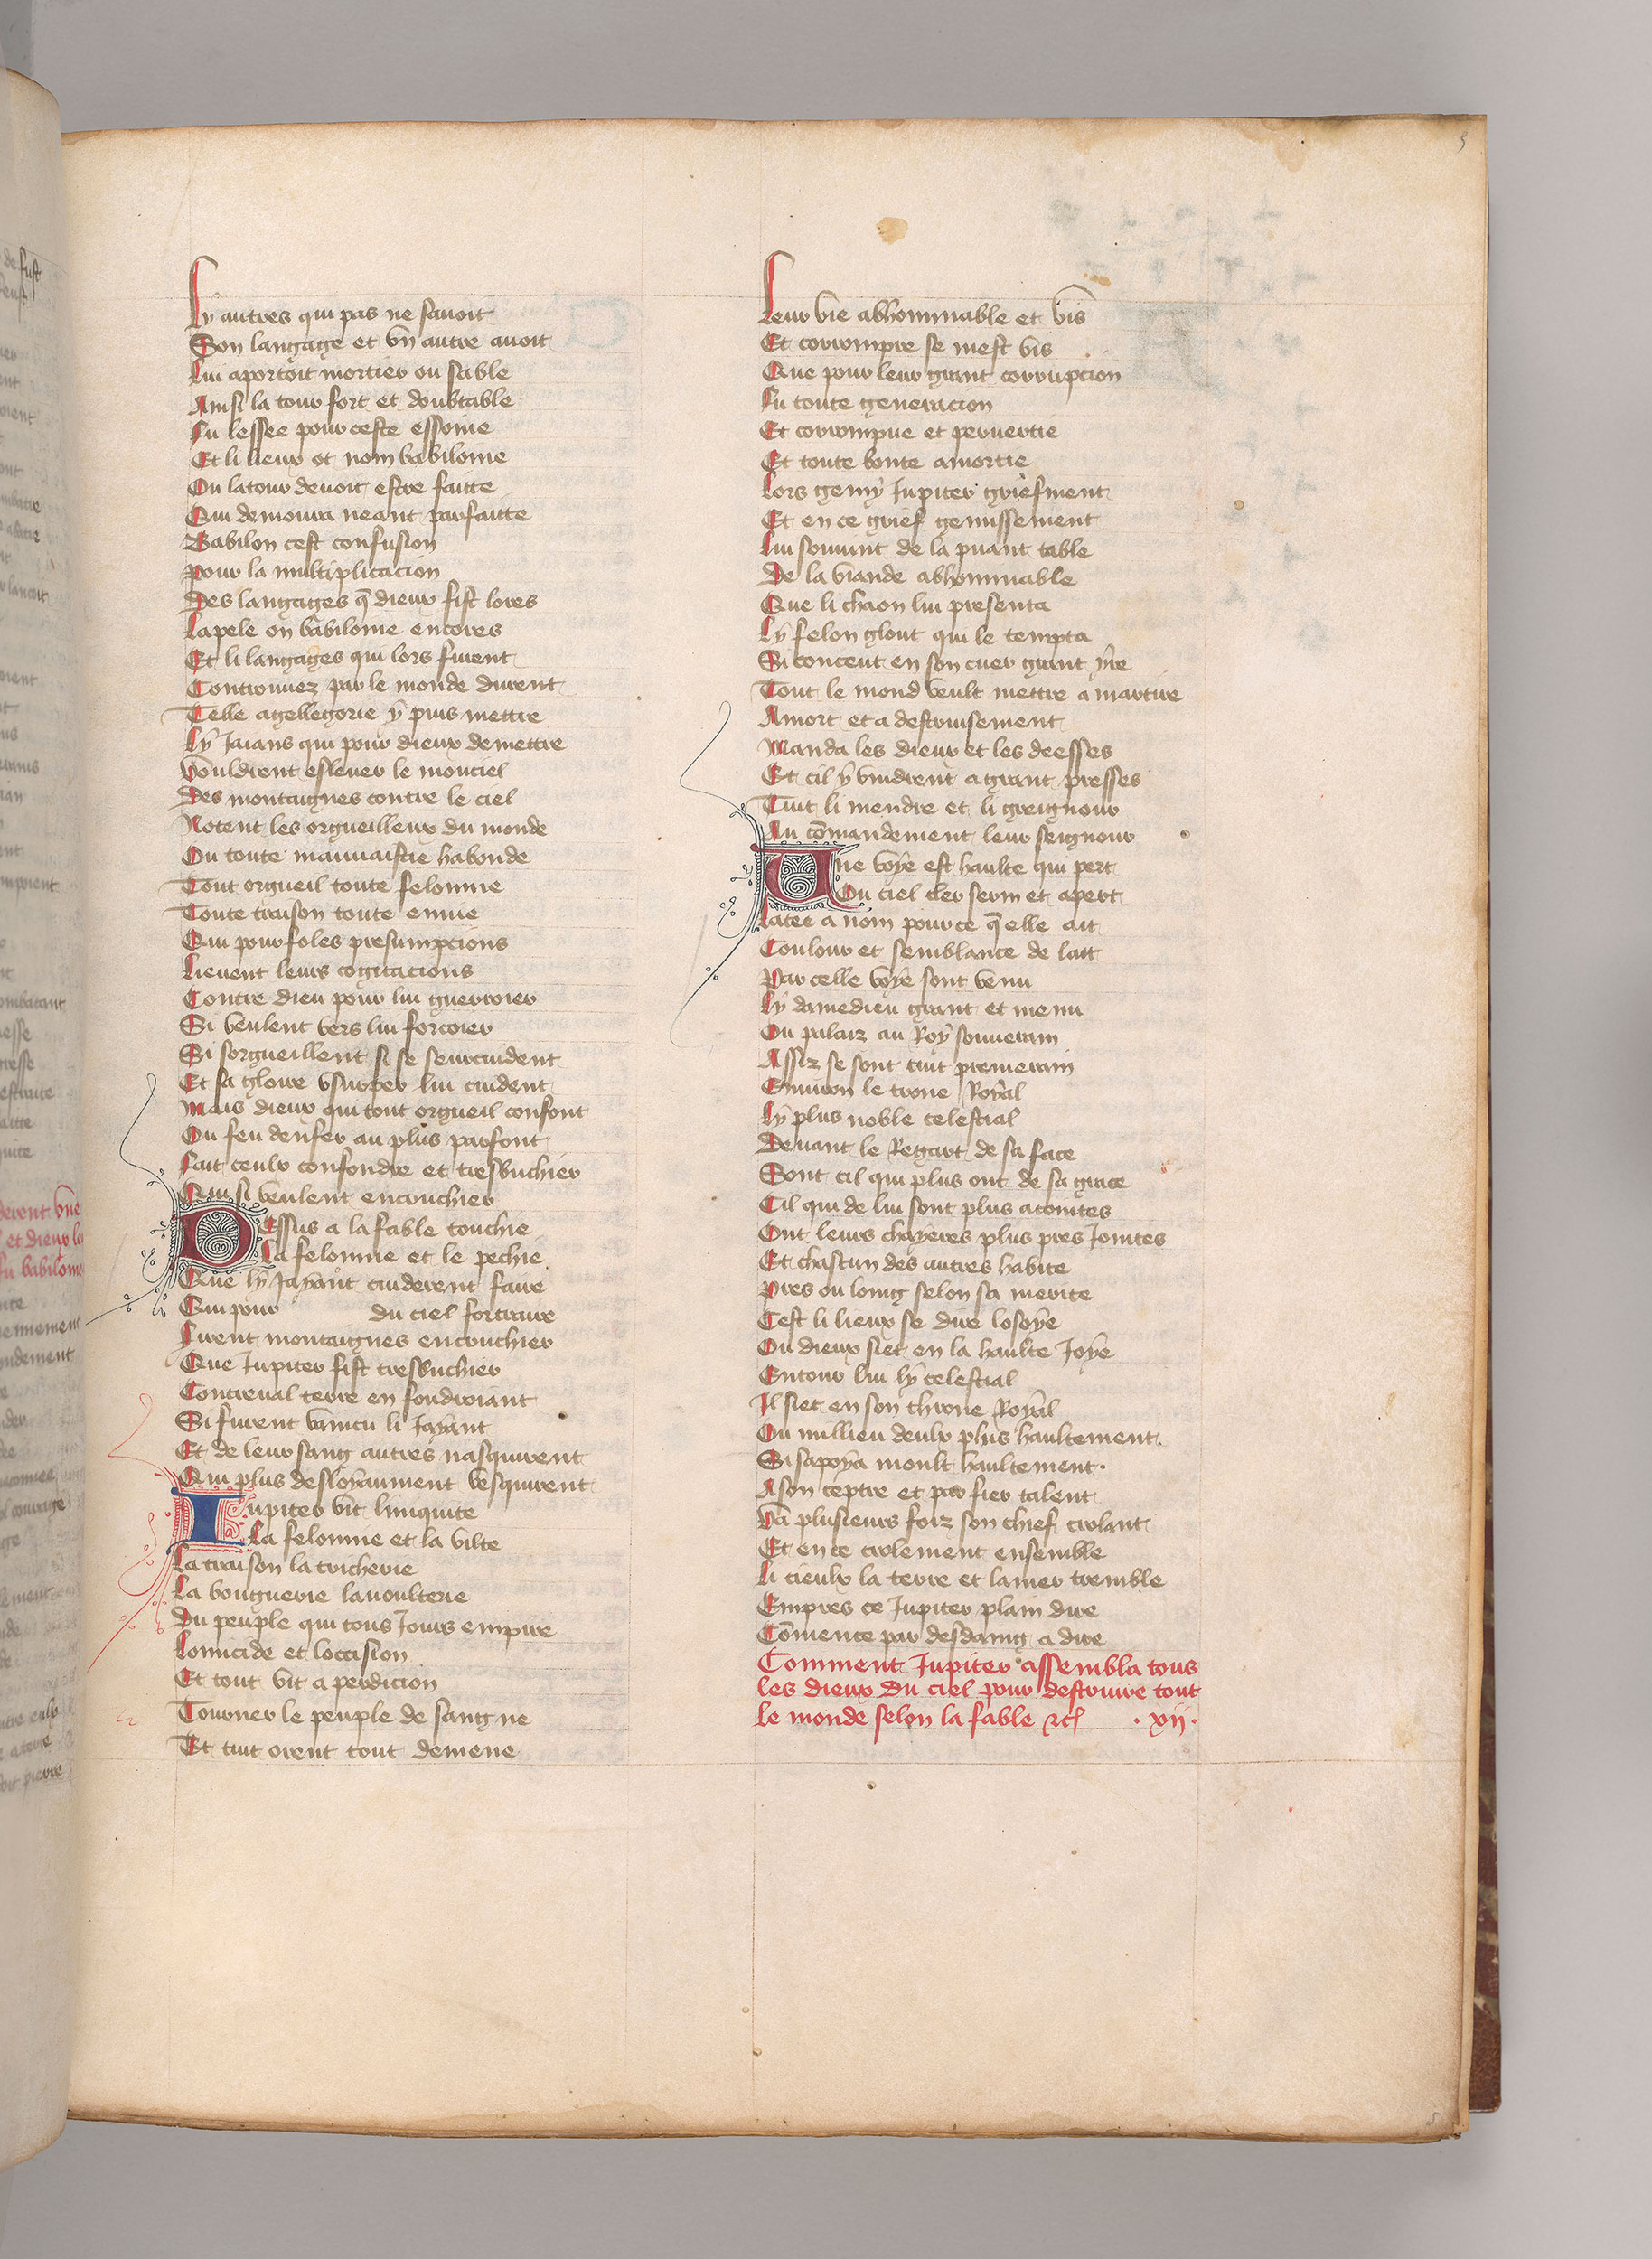 Ly autres qui pas ne sauoit
Son langage et vn autre auoit
Lui aportoit mortier ou sable
Ainsi la tour fort et doubtable
Fu lessee pour ceste essoine
Et li lieux ot nom babiloine
Ou latour deuoit estre faitte
Qui demoura neant parfaitte
Babilon cest confusion
pour la multiplicacion
Des langages q̄ dieux fist lores
Lapele on babiloine encores
Et li langages qui lors furent
Controuuez par le monde durent
Telle agellegorie y puis mettre
Ly Jaians qui pour dieux demettre
Vouldrent esleuer le monciel
Des montaignes contre le ciel
Notent les orgueilleux du monde
Ou toute mauuaistie habonde
Tout orgueil toute felonnie
Toute traison toute enuie
Qui pour foles presumpcions
Lieuent leurs cogitacions
Contre dieu pour lui guerroier
Si veulent vers lui forcoier
Si sorgueillent si se seurcuident
Et sa gloire vsurper lui cuident
Mais dieux qui tout orgueil confont
Ou feu denfer au plus parfont
Fait ceulx confondre et tresbuchier
Qui si veulent encruchier
Dessus a la fable touchie
La felonnie et le pechie
Que ly Jayant cuiderent faire
Qui pour du ciel fortraire
Firent montaignes encruchier
Que Jupiter fist tresbuchier
Contreual terre en foudroiant
Si furent vaincu li Jayant
Et de leur sang autres nasquirent
Qui plus desloyaument vesquirent
Jupiter vit liniquite
La felonnie et la vilte
La traison la tricherie
La bouguerie lauoulterie
Du peuple qui tous Jours empire
Lomicide et loccision
Et tout vit a perdicion
Tourner le peuple de sang ne
Et tuit orent tout demene
Leur vie abhominable et vis
Et corrompre se mest vis
Que pour leur grant corrupcion
Fu toute generacion
Et corrompue et peruertie
Et toute bonte amortie
Lors gemy Jupiter griefment
Et en ce grief gemissement
Lui souuint de la puant table
De la viande abhominable
Que li chaon lui presenta
Ly felon glout qui le tempta
Si conceut en son cuer grant yre
Tout le mond veult mettre a martire
Amort et a destruisement
Manda les dieux et les deesses
Et cil y vindrent a grant presses
Tuit li mendre et li greigneur
Au cōmandement leur seigneur
Une voye est haulte qui pert
Ou ciel cler serin et apert
Latee a nom pource q̄ elle ait
Coulour et semblance de lait
Par celle voye sont venu
Ly damedieu grant et menu
Ou palaiz au Roy souuerain
Assiz se sont tuit premerain
Enuiron le trone Royal
Ly plus noble celestial
Deuant le Regart de sa face
Sont cil qui plus ont de sa grace
Cil qui de lui sont plus acointes
Ont leurs chayeres plus pres Jointes
Et chascun des autres habite
Pres ou loing selon sa merite
Cest li lieux se dire losoye
Ou dieux siet en la haulte Joye
Entour lui ly celestial
Il siet en son throne Royal
Ou millieu deulx plus haultement.
Si sapoya moult haultement.
A son ceptre et par fier talent
Va plusieurs foiz son chief crolant
Et en ce crolement ensemble
Li cieulx la terre et lamer tremble
Empres ce Jupiter plain dire
Cōmence par desdaing a dire
Comment Jupiter assembla tous
les dieux du ciel pour destruire tout
le monde selon la fable etc̃ · xij ·